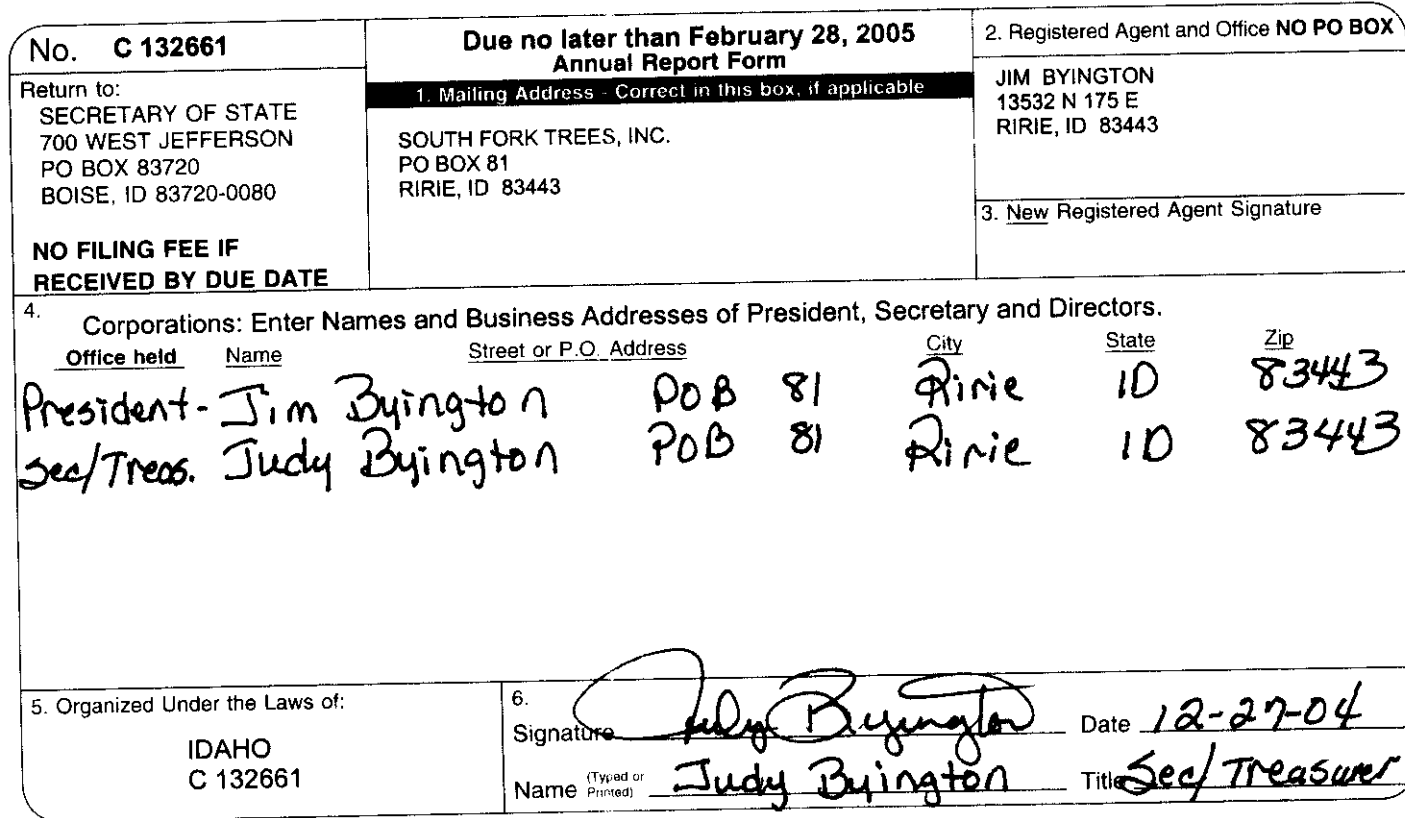 No. C 132661
Return to:
SECRETARY OF STATE
700 WEST JEFFERSON
PO BOX 83720
BOISE, ID 83720-0080
NO FILING FEE IF
RECEIVED BY DUE DATE
Due no later than February 28, 2005
Annual Report Form
1. Mailing Address - Correct in this box, if applicable
SOUTH FORK TREES, INC.
PO BOX 81
RIRIE, ID 83443
2. Registered Agent and Office NO PO BOX
JIM BYINGTON
13532 N 175 E
RIRIE, ID 83443
3. New Registered Agent Signature
4. Corporations: Enter Names and Business Addresses of President, Secretary and Directors.
Office held Name Street or P.O. Address City State Zip
President- Jim Byington POB 81 Ririe ID 83443
Sec/Treas. Judy Byington POB 81 Ririe ID 83443
5. Organized Under the Laws of:
IDAHO
C 132661
6.
Signature Judy Byington Date 12-27-04
Name (Typed or Printed) Judy Byington Title Sec/Treasurer